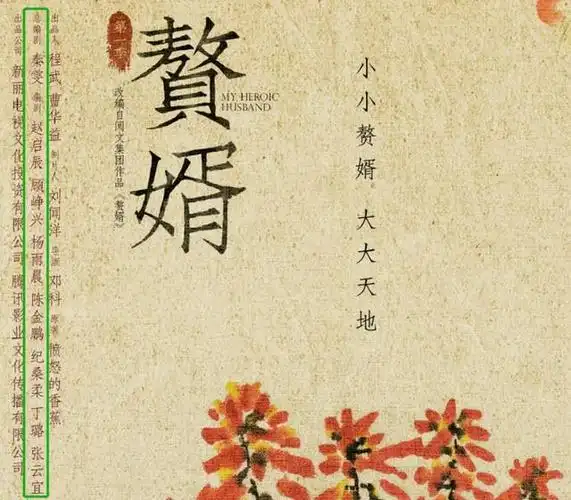 小小赘婿。大大天地
赘婿
MY HEROIC
HUSBAND
第一季
改编自阅文集团作品《赘婿》
出品人 程武 曹华益 制片人 刘闻洋 导演 邓科 原著 愤怒的香蕉
总编剧 秦雯 编剧 赵启辰 顾峥兴 杨雨晨 陈金鹏 纪桑柔 丁璐 张云宜
出品公司 新丽电视文化投资有限公司 腾讯影业文化传播有限公司